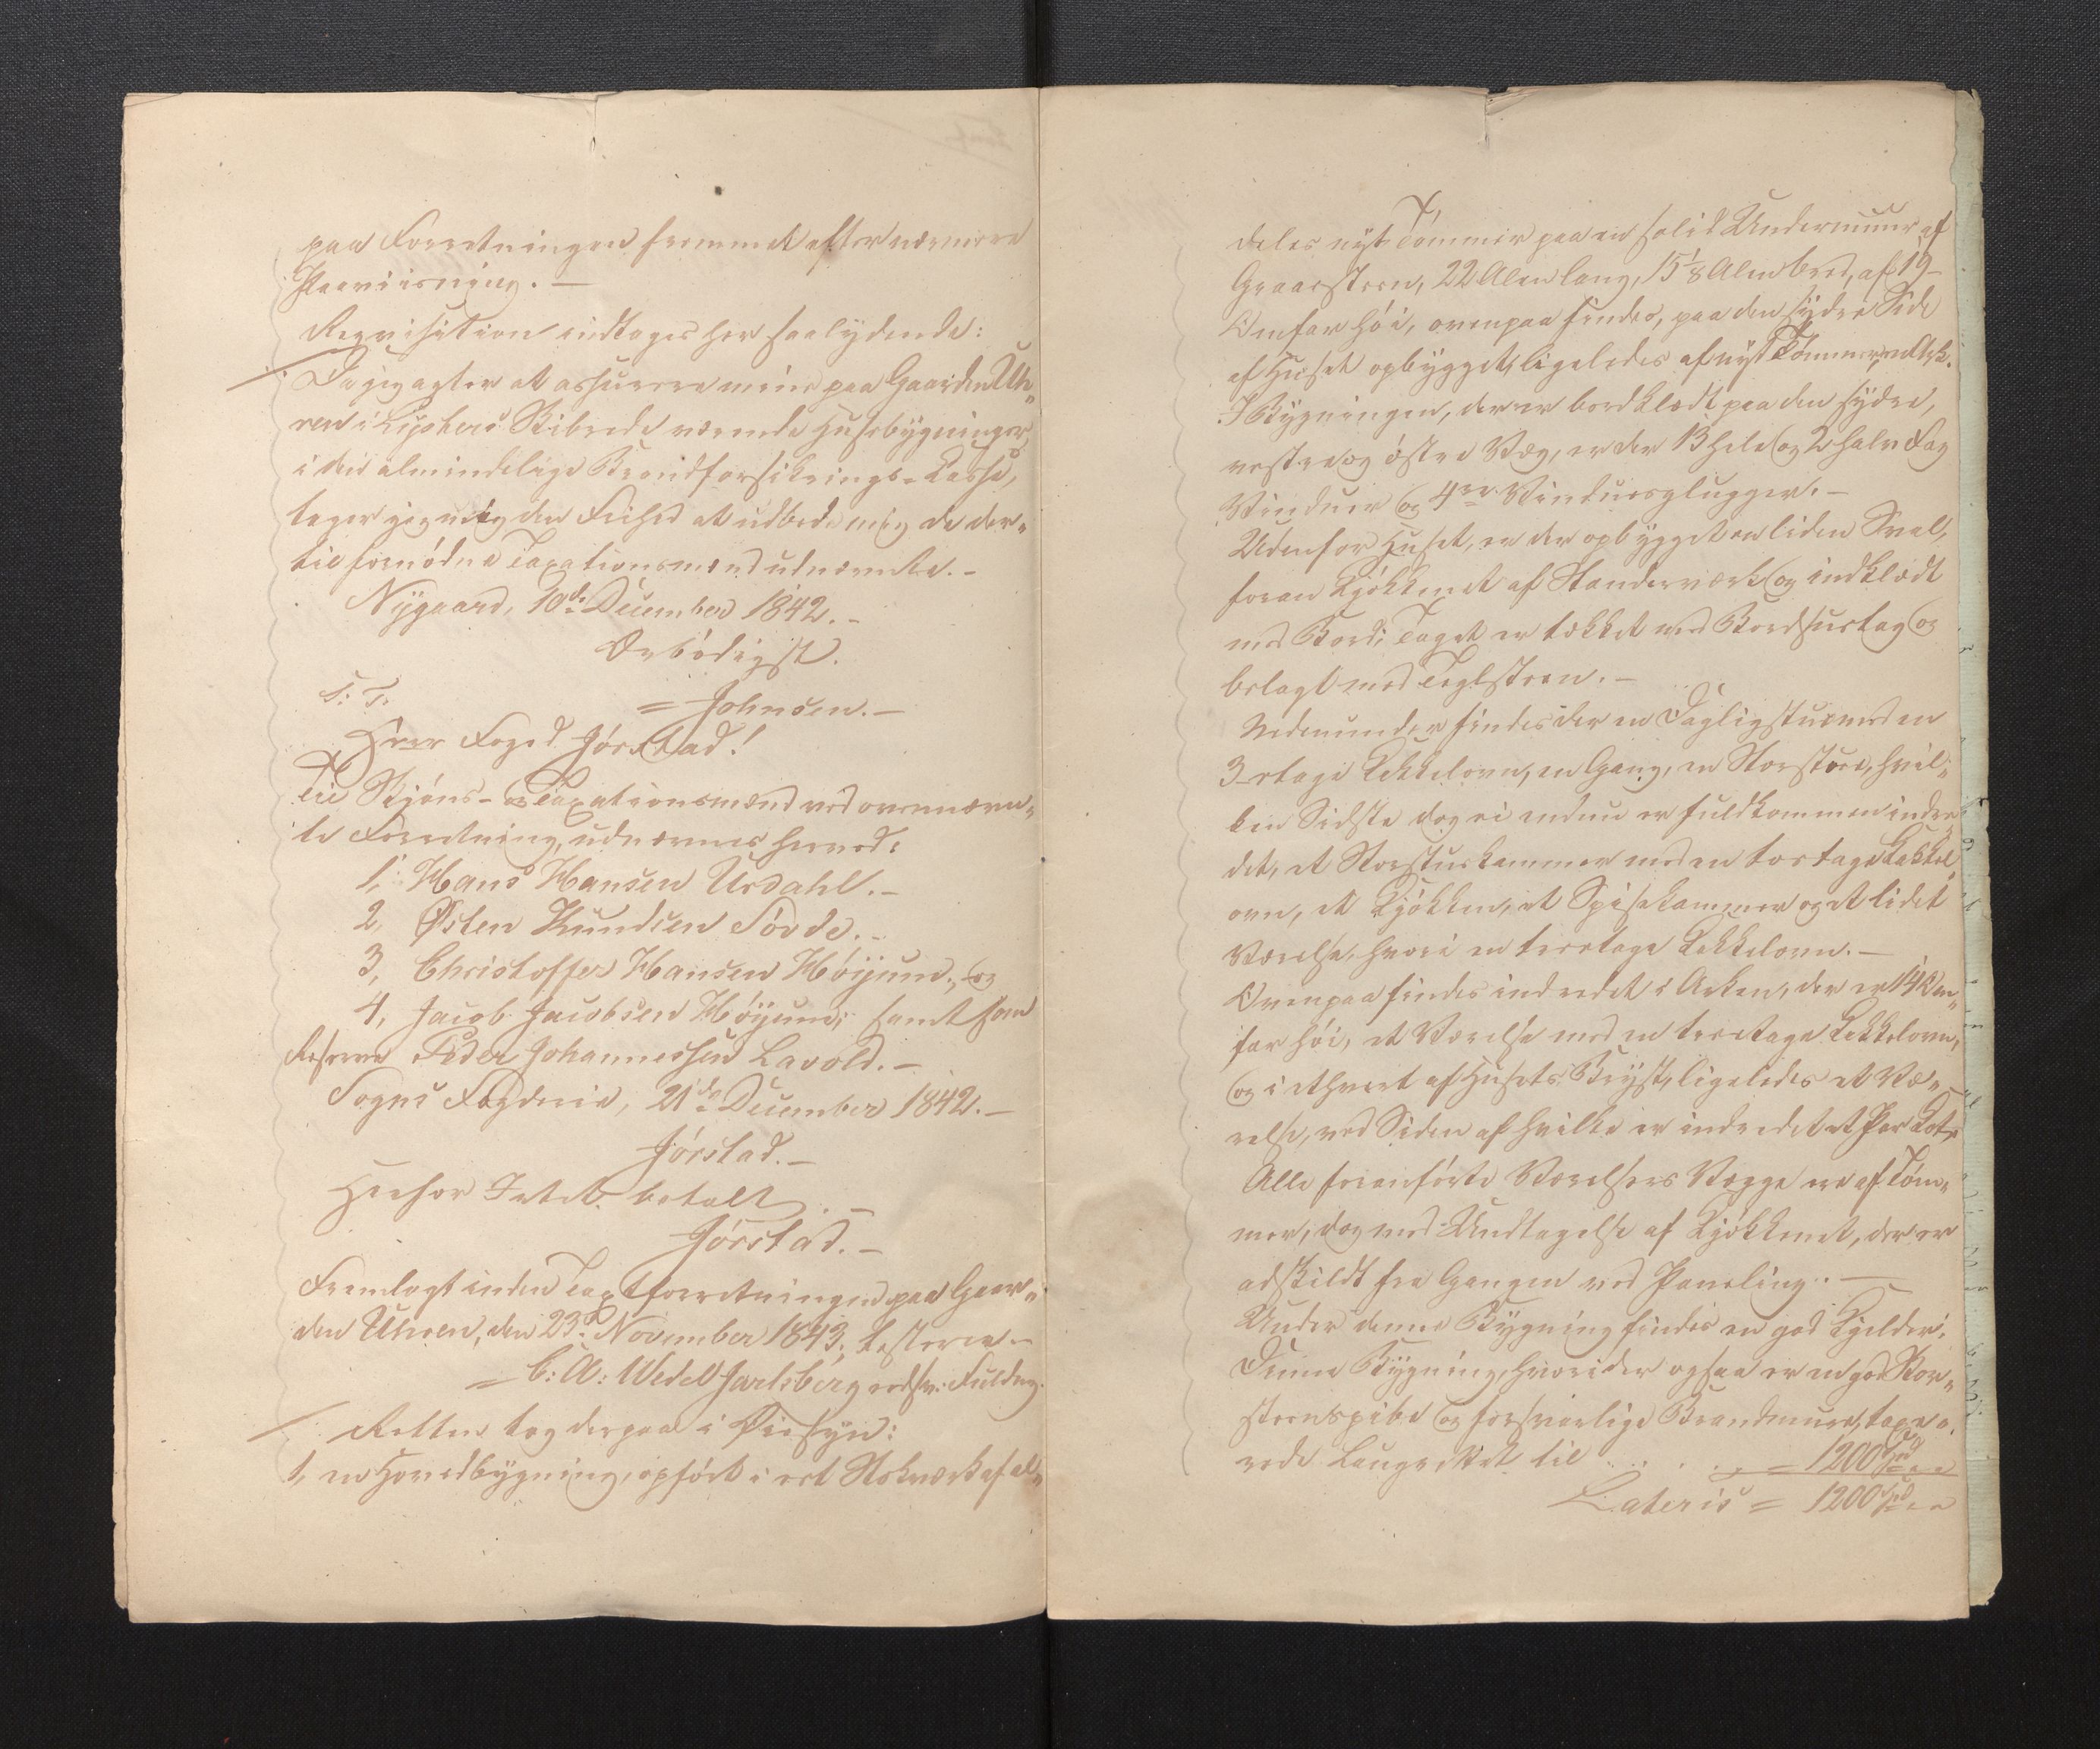 paa Forretningen fremmet efter nærmere
Paaviisning. —
Reqvisition indtages her saalydende:
Da jeg agter at assurere mine paa Gaarden Uh-
ren i Lysters Skibrede værende Huusbygninger,
i den almindelige Brandforsikrings-Casse,
tager jeg mig den Frihed at udbede mig de der-
til fornödne Taxationsmænd udnævnte. -
Nygaard, 10de December 1842. -
Ærbödigst.
S: T: = Johnsen. —
Herr Foged Jörstad!
Til Skjöns- og Taxationsmænd ved ovennævn-
te Forretning, udnævnes herved:
1, Hans Hansen Urdahl. -
2, Østen Knudsen Sövde. -
3, Christoffer Hansen Höyum, og
4, Jacob Jacobsen Höyum, samt som
Reserve Peder Johannessen Lavold. -
Sogns Fogderie, 21de December 1842. -
Jörstad. -
Herfor Intet betalt. -
Jörstad. -
Fremlagt inden Taxtforretningen paa Gaar-
den Uhren, den 23d November 1843, testerer -
= C: A: Wedel Jarlsberg edsv: Fuldm.
Retten tog derpaa i Øiesyn:
1, en Hovedbygning, opfört i eet Stokværk af al-
deles nyt Tömmer paa en solid Undermuur af
Graaesteen, 22 Alen lang, 15 1/8 Alen bred, af 19
Omfar höi, ovenpaa findes, paa den sydre Side
af Huset opbygget, ligeledes af nyt Tömmer, en Ark.
I Bygningen, der er bordklædt paa den sydre,
vestre og östre Væg, er der 13 hele og 2 halv Fag
Vinduer og 4re Vinduesglugger. -
Udenfor Huset, er der opbygget en liden Sval,
foran Kjökkenet af Standerværk og indklædt
med Bord; Taget er tækket med Bordsustag og
belagt med Teglsteen. -
Nedenunder findes der en Dagligstue med en
3-etage Kakkelovn, en Gang, en Storstue, hvil-
ken Sidste dog ei endnu er fuldkommen indre-
det, et Storstuekammer med en toetage Kakkel-
ovn, et Kjökken, et Spisekammer og et lidet
Værelse, hvori en treetage Kakkelovn. —
Ovenpaa findes indredet i Arken, der er 14 Om-
far höi, et Værelse med en treetage Kakkelovn,
og i ethvert af Husets Bryst, ligeledes et Væ-
relse, ved Siden af hvilke er indredet et Par Kott
Alle foranförte Værelsers Vægge ere af Töm-
mer, dog med Undtagelse af Kjökkenet, der er
adskildt fra Gangen ved Paneling. —
Under denne Bygning findes en god Kjelder.
Denne Bygning, hvori der ogsaa er en god Skor-
steenspibe og forsvarlige Brandmure, taxe-
rede Laugrettet til . . . . = 1200 Spd
Lateris = 1200 Spd